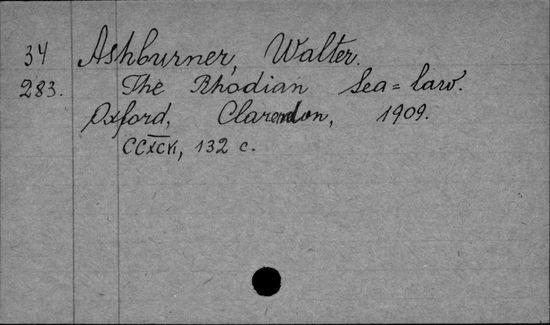 34 Ashburner, Walter.
283. The Rhodian Sea=law.
Oxford, Clarendon, 1909.
132 c.